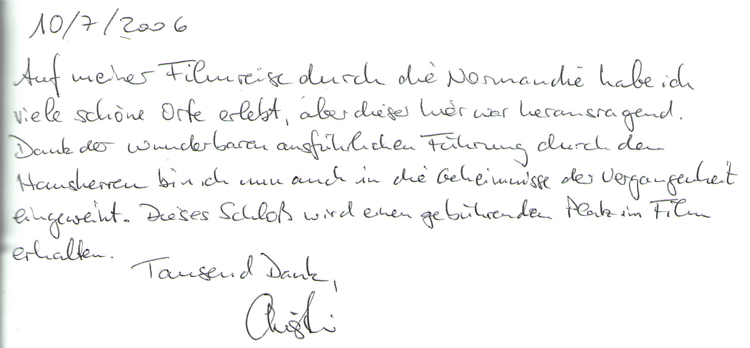 10/7/2006
Auf meiner Filmreise durch die Normandie habe ich
viele schöne Orte erlebt, aber dieser hier war herausragend.
Dank der wunderbaren ausführlichen Führung durch den
Hausherren bin ich nun auch in die Geheimnisse der Vergangenheit
eingeweiht. Dieses Schloß wird einen gebührenden Platz im Film
erhalten.
Tausend Dank,